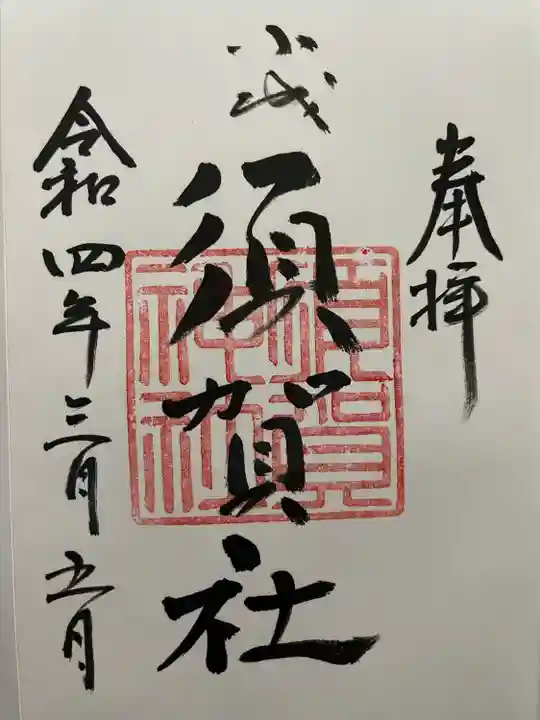 奉拝
小城
須賀社
須賀神社
令和四年三月五日